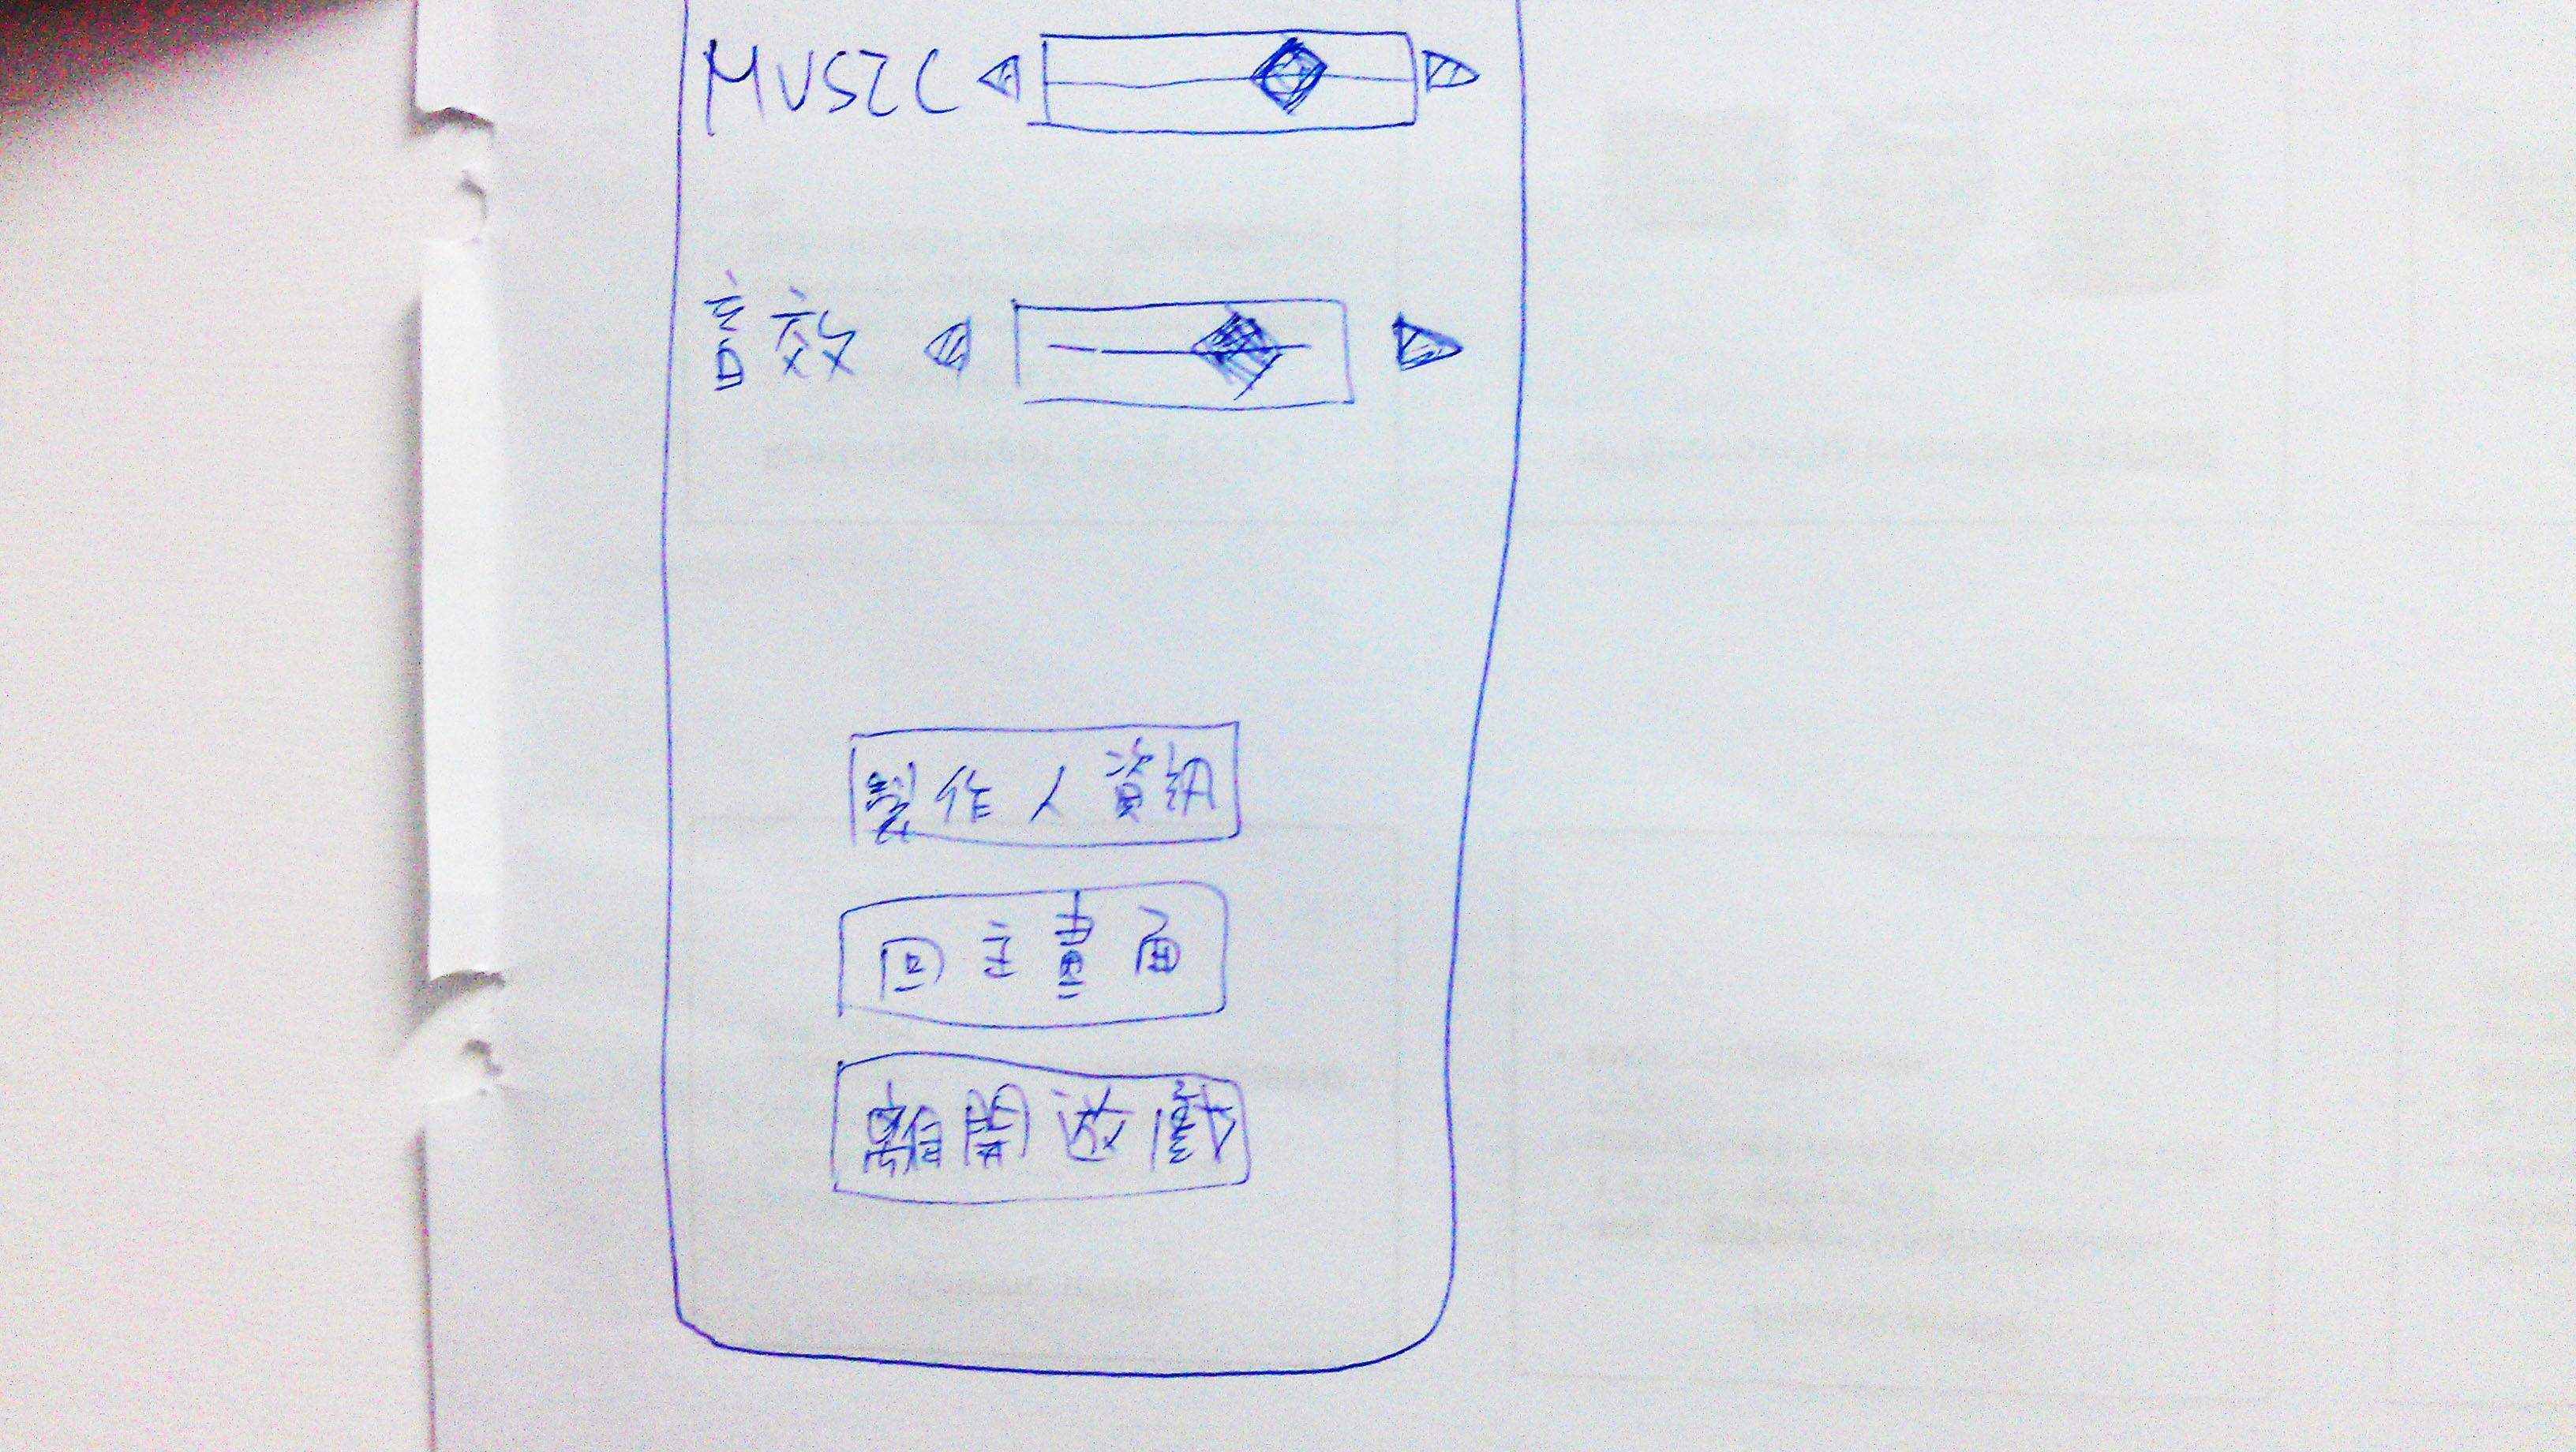 MUSIC
音效
製作人資訊
回主畫面
離開遊戲